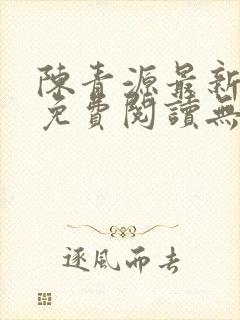 陳青源最新
免費閱讀無
逐風而去